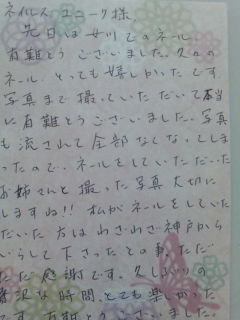 ネイルズ ユニーク様
先日は女川でのネール
有難とうございました。久々の
ネール、とっても嬉しかったです。
写真まで撮っていただいて本当
に有難とうございました。写真
も流されて全部なくなってしま
ったので、ネールをしていただいた
お姉さんと撮った写真大切に
しますね!! 私がネールをしていた
だいた方はわざわざ神戸から
いらして下さったとの事、ただ
ただ感謝です。久しぶりの
贅沢な時間、とても楽しかった
です。有難とうございました。